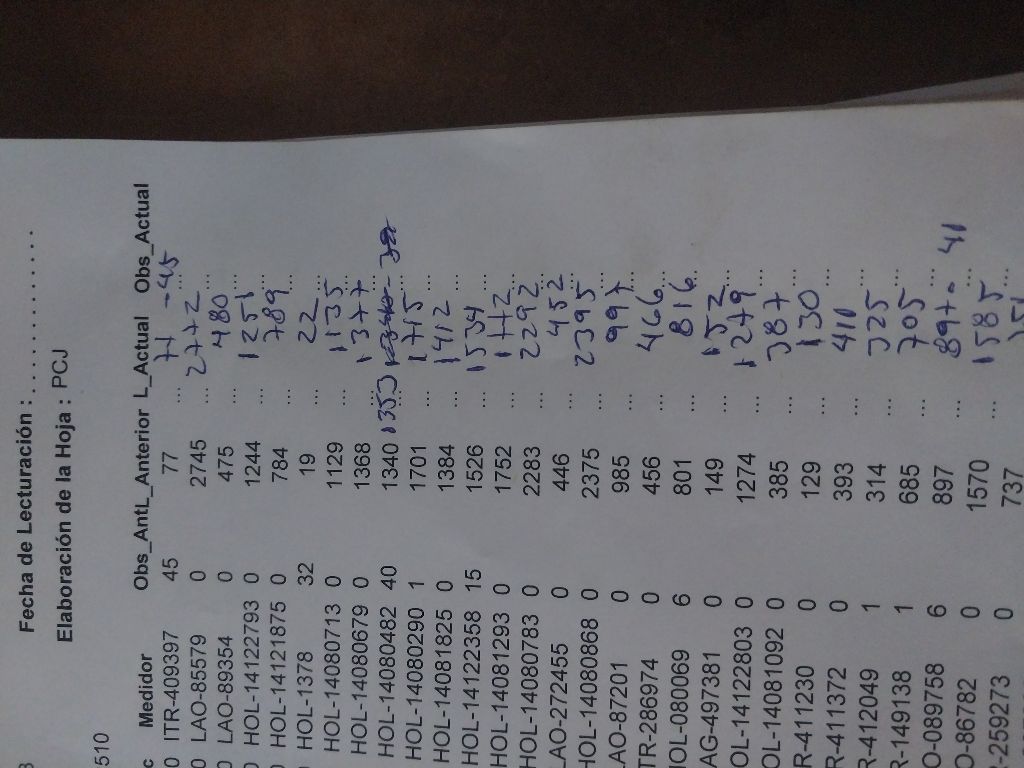 Fecha de Lecturación : ..........................
Elaboración de la Hoja : PCJ
510
Medidor Obs_AntL_Anterior L_Actual Obs_Actual
0 ITR-409397 45 77 ... 77 -45
0 LAO-85579 0 2745 ... 2772 ...
0 LAO-89354 0 475 ... 480 ...
0 HOL-14122793 0 1244 ... 1251 ...
0 HOL-14121875 0 784 ... 789 ...
HOL-1378 32 19 ... 22 ...
HOL-14080713 0 1129 ... 1135 ...
HOL-14080679 0 1368 ... 1377 ...
HOL-14080482 40 1340 1353
HOL-14080290 1 1701 ... 1715 ...
HOL-14081825 0 1384 ... 1412 ...
HOL-14122358 15 1526 ... 1534 ...
HOL-14081293 0 1752 ... 1772 ...
HOL-14080783 0 2283 ... 2292 ...
LAO-272455 0 446 ... 452 ...
HOL-14080868 0 2375 ... 2395 ...
AO-87201 0 985 ... 997 ...
TR-286974 0 456 ... 466 ...
OL-080069 6 801 ... 816 ...
AG-497381 0 149 ... 152 ...
OL-14122803 0 1274 ... 1279 ...
OL-14081092 0 385 ... 387 ...
R-411230 0 129 ... 130 ...
R-411372 0 393 ... 411 ...
R-412049 1 314 ... 325 ...
R-149138 1 685 ... 705 ...
O-089758 6 897 ... 897 ... 41
O-86782 0 1570 ... 1585 ...
-2592273 0 737